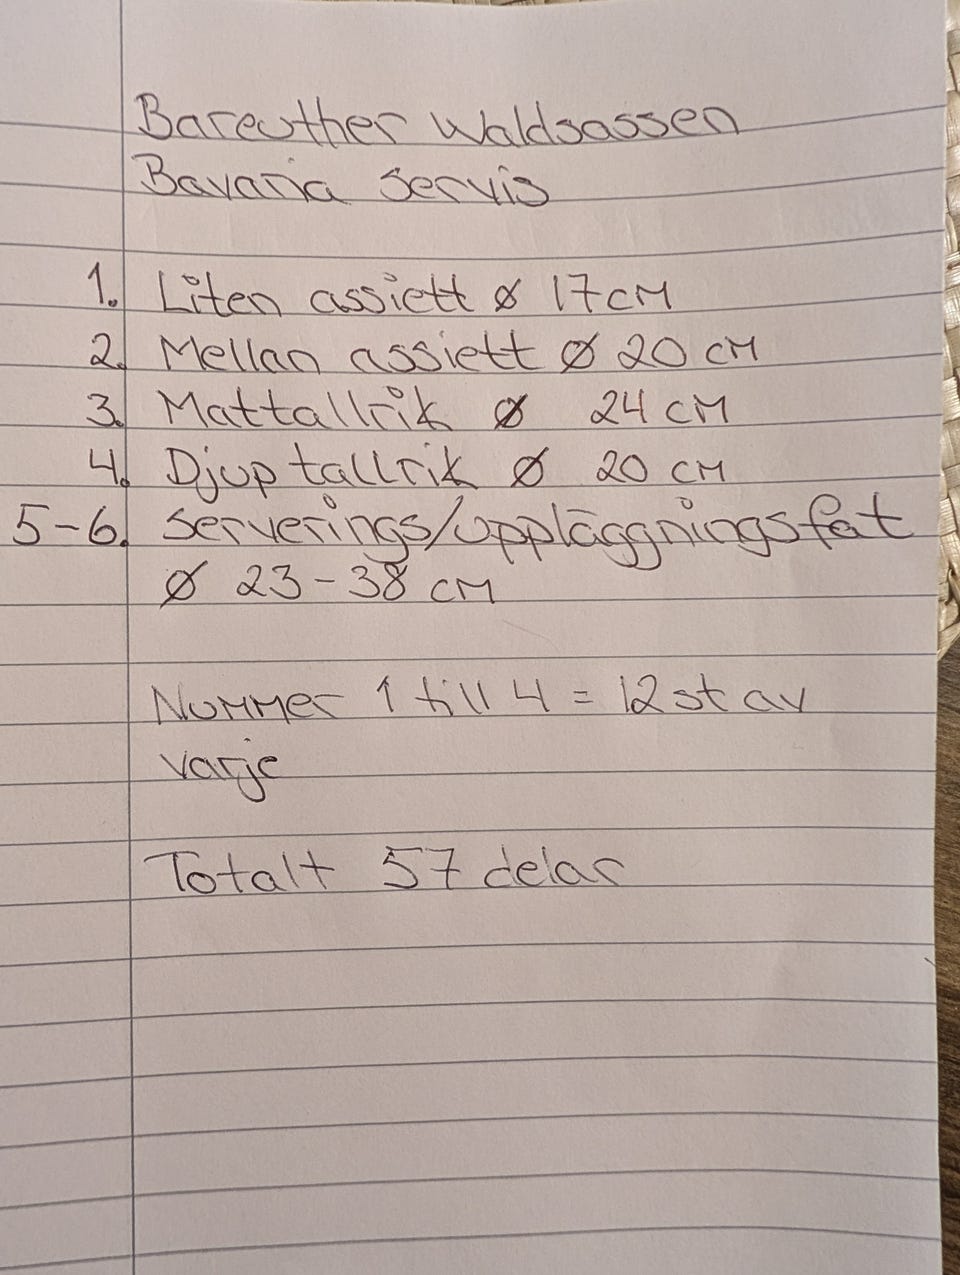 Bareuther Waldsassen
Bavaria servis
1. Liten assiett ø 17 cm
2. Mellan assiett Ø 20 cm
3. Mattallrik Ø 24 cm
4. Djup tallrik Ø 20 cm
5-6. Serverings/uppläggningsfat
Ø 23-38 cm
Nummer 1 till 4 = 12 st av
varje
Totalt 57 delar